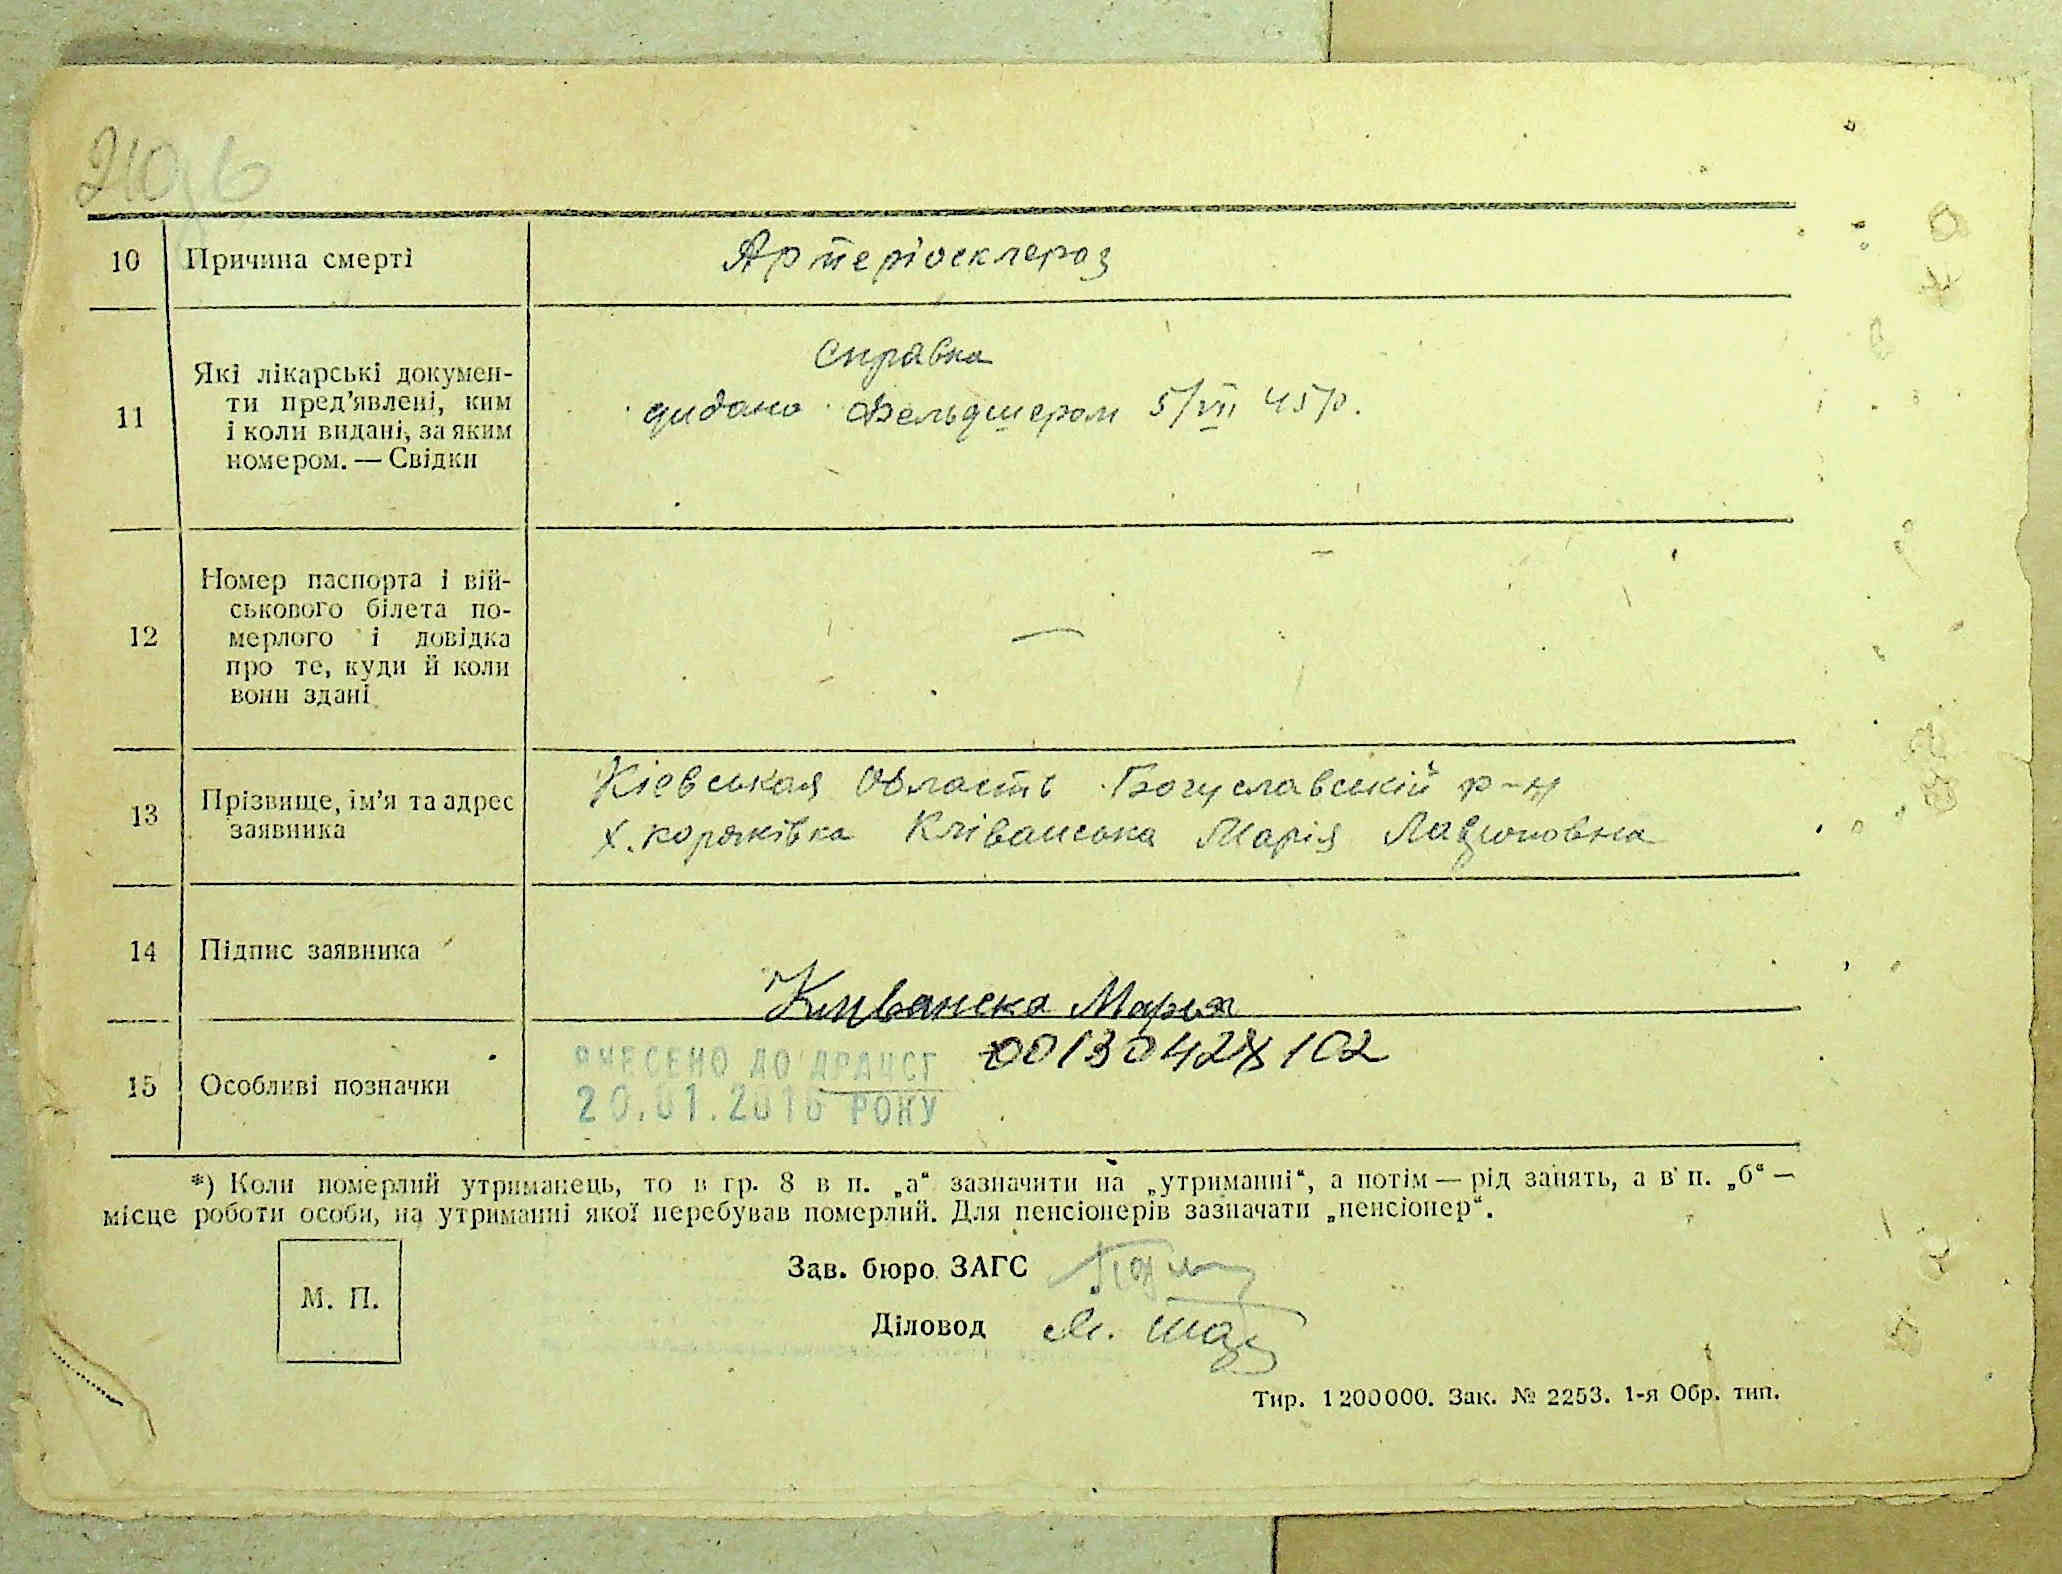 10 Причина смерті Артеріосклероз
11 Які лікарські докумен-
ти пред’явлені, ким
і коли видані, за яким
номером. — Свідки
Справка
видано Фельдшером 5/VII 45 р.
12 Номер паспорта і вій-
ськового білета по-
мерлого і довідка
про те, куди й коли
вони здані
—
13 Прізвище, ім’я та адрес
заявника
Кіевськая Область Богуславській р-н
х. коряківка Кліванська Марія
14 Підпис заявника
Кливанска Мария
15 Особливі позначки
ВНЕСЕНО ДО ДРАЦСГ
20.01.2016 РОКУ
*) Коли померлий утриманець, то в гр. 8 в п. „а“ зазначити на „утриманні“, а потім — рід занять, а в п. „б“ —
місце роботи особи, на утриманні якої перебував померлий. Для пенсіонерів зазначати „пенсіонер“.
М. П.
Зав. бюро ЗАГС
Діловод
Тир. 1 200000. Зак. № 2253. 1-я Обр. тип.